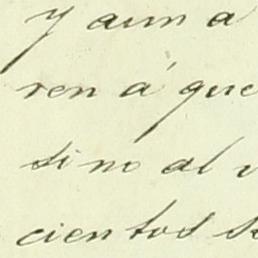 y aun a
ren á que
sino al
cientos